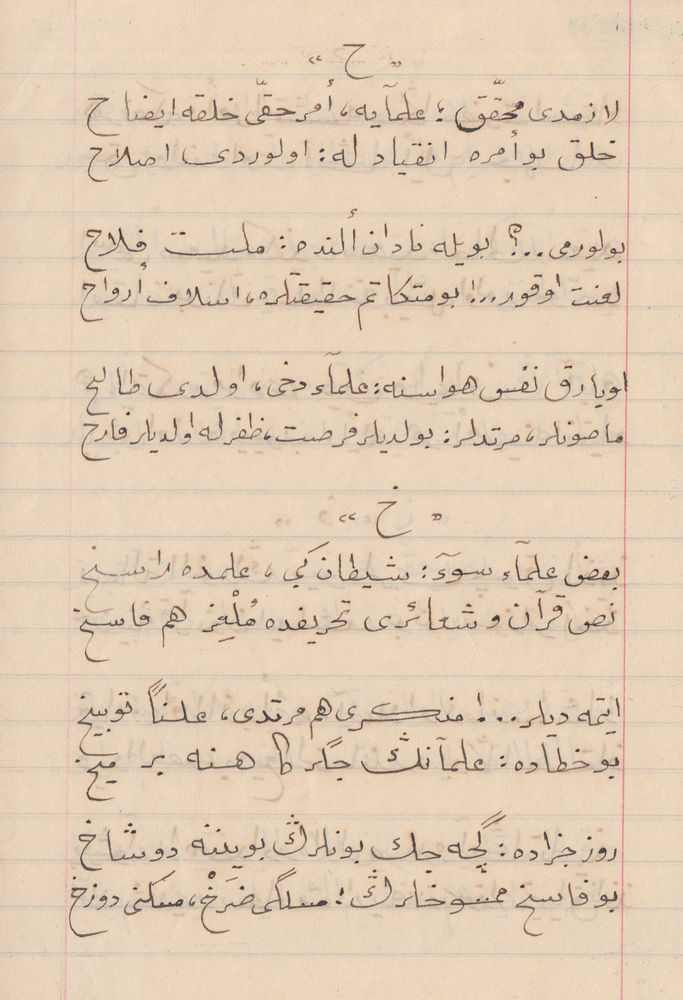 « ح »
لازمدی محقّق ؛ علمآیه ، أمر حقّی خلقه ایضاح
خلق بو أمره انقیاد له : اولوردی اصلاح
بولورمی ...؟ بویله نادان ألنده : ملت فلاح
لعنت اوقور ...! بو متکاتم حقیقتلره ، اسلاف أرواح
اویارق نفس هواسنه : علمآء دخی ، اولدی طالح
ماصونلر ، مرتدلر : بولدیلر فرصت ، ظفرله اولدیلر فارح
« خ »
بعض علمآء سوٓء : شیطان کبی ، علمده راسخ
نص قرآن و شعائری تحریفده مُلْغِز هم فاسخ
ایتمه دیلر ...! منکری هم مرتدی ، علناً توبیخ
بو خطاده : علمآنڭ جگرکاهنه بر میخ
روز جزاده : گچه جك بونلرڭ بویننه دوشاخ
بو فاسخ ممسوخلرڭ ؛ مسلگی ضَرَخْ ، مسکنی دوزخ